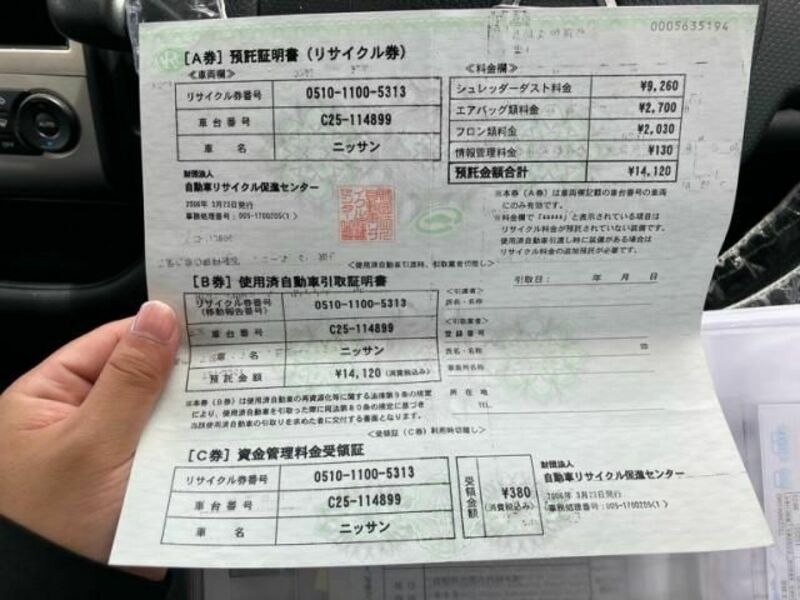 0005635194
[A券] 預託証明書 (リサイクル券)
≪車両欄≫
リサイクル券番号 0510-1100-5313
車台番号 C25-114899
車名 ニッサン
≪料金欄≫
シュレッダーダスト料金 ¥9,260
エアバッグ類料金 ¥2,700
フロン類料金 ¥2,030
情報管理料金 ¥130
預託金額合計 ¥14,120
財団法人
自動車リサイクル促進センター
2006年 3月23日発行
事務処理番号:005-1700205(1)
※本券(A券)は車両欄記載の車台番号の車両
にのみ有効です。
※料金欄で「*****」と表示されている項目は
リサイクル料金が預託されていない装備です。
使用済自動車引渡し時に装備がある場合は
リサイクル料金の追加預託が必要です。
<使用済自動車引渡時、引取業者切離し>
[B券] 使用済自動車引取証明書
リサイクル券番号
(移動報告番号) 0510-1100-5313
車台番号 C25-114899
車名 ニッサン
預託金額 ¥14,120 (消費税込み)
引取日: 年 月 日
<引渡者>
氏名・名称
<引取業者>
登録番号
氏名・名称 ㊞
事業所名称
所在地
TEL
※本券(B券)は使用済自動車の再資源化等に関する法律第9条の規定
により、使用済自動車を引取った際に同法第80条の規定に基づき
当該使用済自動車の引取りを求めた者に交付する書面となります。
<受領証(C券)利用時切離し>
[C券] 資金管理料金受領証
リサイクル券番号 0510-1100-5313
車台番号 C25-114899
車名 ニッサン
受領金額 ¥380
(消費税込み)
財団法人
自動車リサイクル促進センター
2006年 3月23日発行
事務処理番号:005-1700205(1)